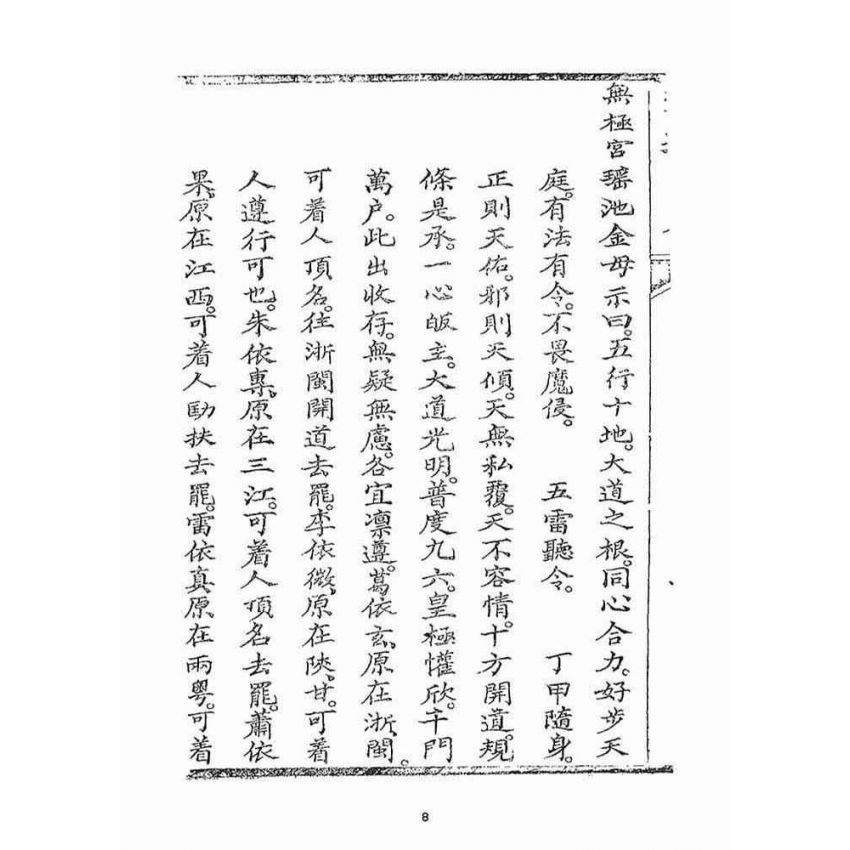 無極宮瑤池金母示曰。五行十地。大道之根。同心合力。好步天
庭。有法有令。不畏魔侵。 五雷聽令。 丁甲隨身。
正則天佑。邪則天傾。天無私覆。天不容情。十方開道。規
條是承。一心皈主。大道光明。普度九六。皇極懽欣。千門
萬户。此出收存。無疑無慮。各宜凛遵。葛依玄。原在浙閩。
可着人頂名。往浙閩開道去罷。李依微。原在陝。甘。可着
人遵行可也。朱依專。原在三江。可着人頂名去罷。蕭依
果。原在江西。可着人助扶去罷。雷依真原在兩粵。可着
8